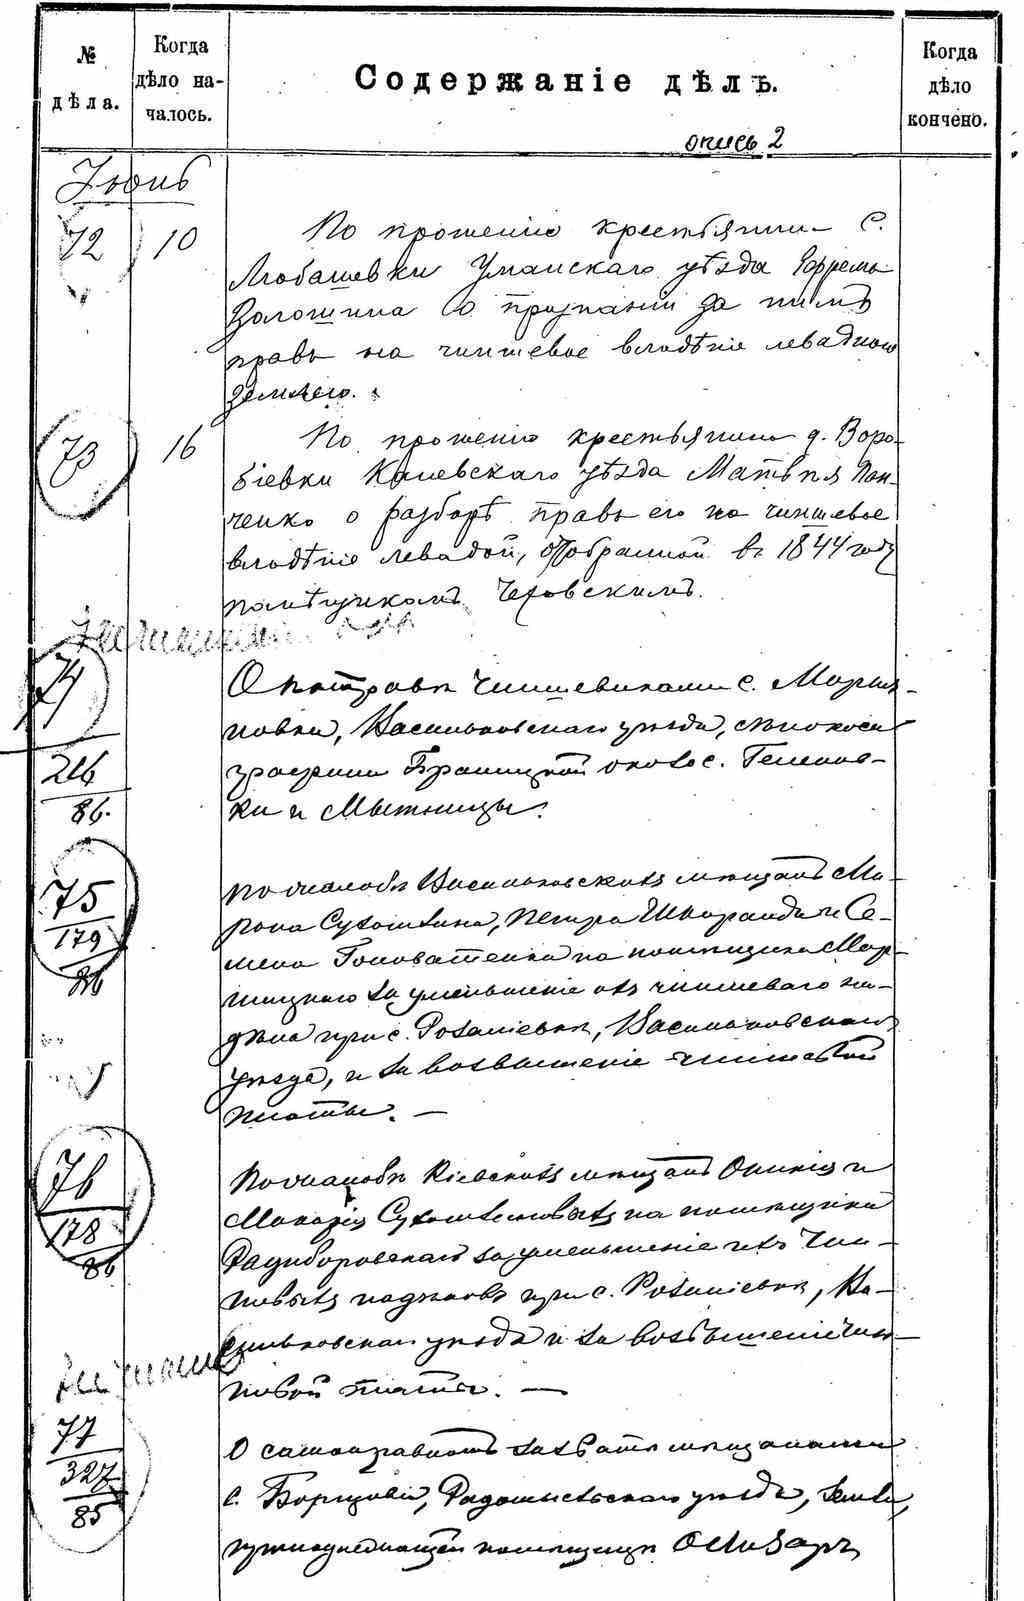 № дѣла.
Когда дѣло на-чалось.
Содержаніе дѣлъ.
Когда дѣло кончено.
опись 2
Іюнь
72 10 По прошенію крестьянина с.
Любашевки Уманскаго уѣзда Ефрема
Волошина о признаніи за нимъ
права на чиншевое владѣніе левадною
землею.
73 16 По прошенію крестьянина д. Воро-
біевки Каневскаго уѣзда Матвѣя Пан-
ченко о разборѣ права его на чиншевое
владѣніе левадой, отобранной въ 1844 году
помѣщикомъ Чеховскимъ.
74 О потравѣ чиншевиками с. Марья-
новки, Васильковскаго уѣзда, сѣнокоса
216 графини Браницкой около с. Геленов-
86. ки и Мытницы.
75 По жалобѣ Васильковскихъ мѣщанъ Ма-
179 рона Сухомлина, Петра Шкоранда и Се-
86 мена Головатенка на помѣщика
за уменьшеніе ихъ чиншеваго на-
дѣла при с. Васильковскаго
уѣзда, и за возвышеніе чиншевой
платы. —
76 По жалобѣ Кіевскихъ мѣщанъ и
178 Макарія Сухомлиновыхъ на помѣщика
86 за уменьшеніе ихъ чин-
шевыхъ надѣловъ при с. Ва-
сильковскаго уѣзда и за возвышеніе чин-
шевой платы. —
77 О самоуправномъ захватѣ мѣщанами
327 с. Борщовіи, Радомысльскаго уѣзда, земли,
85 принадлежащей помѣщицѣ